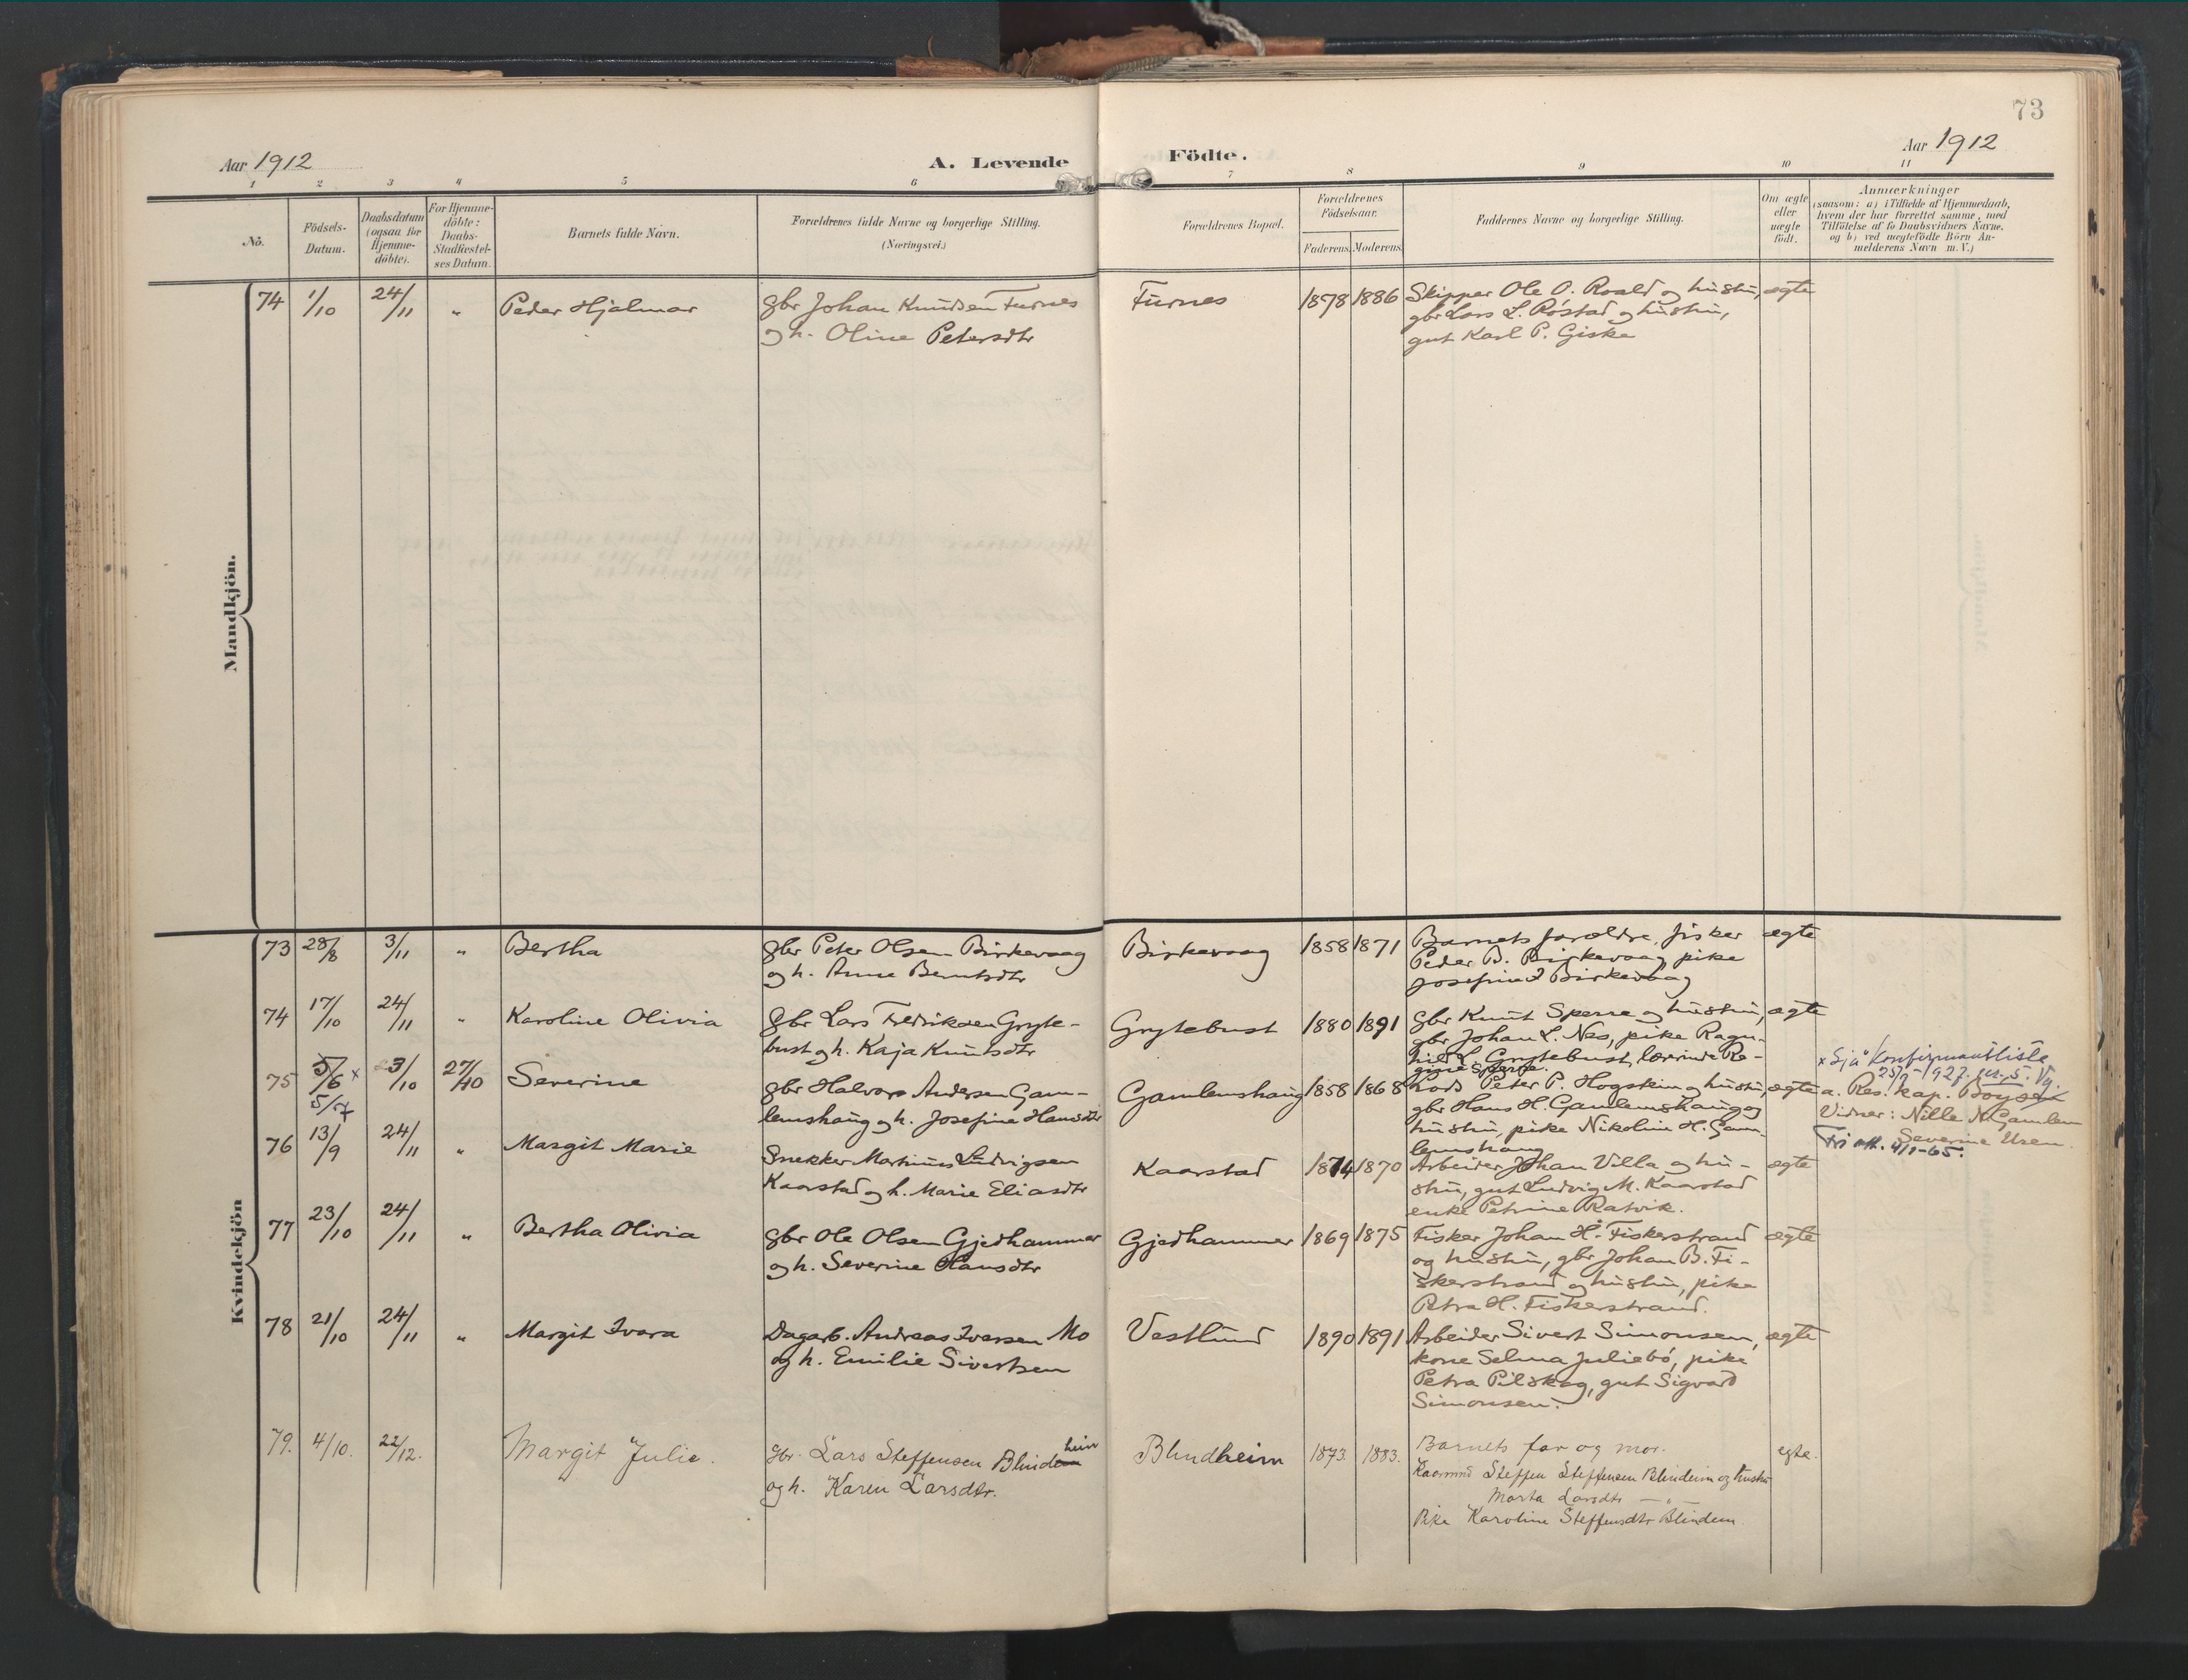 73
Aar 1912
A. Levende Födte.
Aar 1912
1 2 3 4 5 6 7 8 9 10 11
No.
Födsels-
Datum.
Daabsdatum
(ogsaa for
Hjemme-
döbte).
For Hjemme-
döbte:
Daabs-
Stadfæstel-
ses Datum.
Barnets fulde Navn.
Forældrenes fulde Navne og borgerlige Stilling.
(Næringsvei.)
Forældrenes Bopæl.
Forældrenes
Födselsaar.
Faderens. Moderens.
Faddernes Navne og borgerlige Stilling.
Om ægte
eller
uægte
födt.
Anmærkninger
(saasom: a) i Tilfælde af Hjemmedaab,
hvem der har forrettet samme, med
Tilföielse af to Daabsvidners Navne,
og b) ved uægtefödte Börn An-
melderens Navn m. V.)
Mandkjön.
74 1/10 24/11 " Peder Hjalmar
gbr Johan Knudsen Furnes
og h. Oline Petersdtr
Furnes 1878 1886
Skipper Ole O. Roald og hustru, ægte
gbr Lars L. Røstad og hustru,
gut Karl P. Giske
Kvindekjön
73 28/8 3/11 " Bertha
gbr Peter Olsen Birkevaag
og h. Anne Berntsdtr
Birkevaag 1858 1871
Barnets forældre, fisker ægte
Peder B. Birkevaag, pike
Josefine Birkevaag
74 17/10 24/11 " Karoline Olivia
gbr Lars Fredriksen Gryte-
bust og h. Kaja Knutsdtr
Grytebust 1880 1891
gbr Knut Sperre og hustru, ægte
gbr Johan L. Nes, pike Ragn-
hild L. Grytebust, lærerinde Re-
gine Sperre.
75 5/6 x 5/7 3/10 27/10 Severine
gbr Halvor Andersen Gam-
lemshaug og h. Josefine Hansdtr
Gamlemshaug 1858 1868
Kods Peter P. Hogstein og hustru, ægte
gbr Hans H. Gamlemshaug og
hustru, pike Nikoline H. Gam-
lemshaug
x Sjå konfirmantliste
25/9-1927. nr. 5. Vg.
a. Res. kap. Boysen
Vidner: Nille N. Gamlem
Severine Uren.
Fri att. 4/1-65.
76 13/9 24/11 " Margit Marie
Snekker Martinus Ludvigsen
Kaarstad og h. Marie Eliasdtr
Kaarstad 1874 1870
Arbeider Johan Villa og hu- ægte
stru, gut Ludvig M. Kaarstad
enke Petrine Ratvik.
77 23/10 24/11 " Bertha Olivia
gbr Ole Olsen Gjedhammer
og h. Severine Hansdtr
Gjedhammer 1869 1875
Fisker Johan H. Fiskerstrand ægte
og hustru, gbr Johan B. Fi-
skerstrand og hustru, pike
Petra H. Fiskerstrand.
78 21/10 24/11 " Margit Ivara
Dagarb. Andreas Iversen Mo
og h. Emilie Sivertsen
Vestlund 1890 1891
Arbeider Sivert Simonsen, ægte
kone Selma Juliebö, pike
Petra Pilskog, gut Sigvard
Simonsen.
79. 4/10. 22/12. Margit Julie.
gbr. Lars Steffensen Blindheim
og h. Karen Larsdtr.
Blindheim 1873. 1883.
Barnets far og mor. egte.
Kaarmand Steffen Steffensen Blindeim og hustru
Marta Larsdtr — " —
Pike Karoline Steffensdtr Blindem